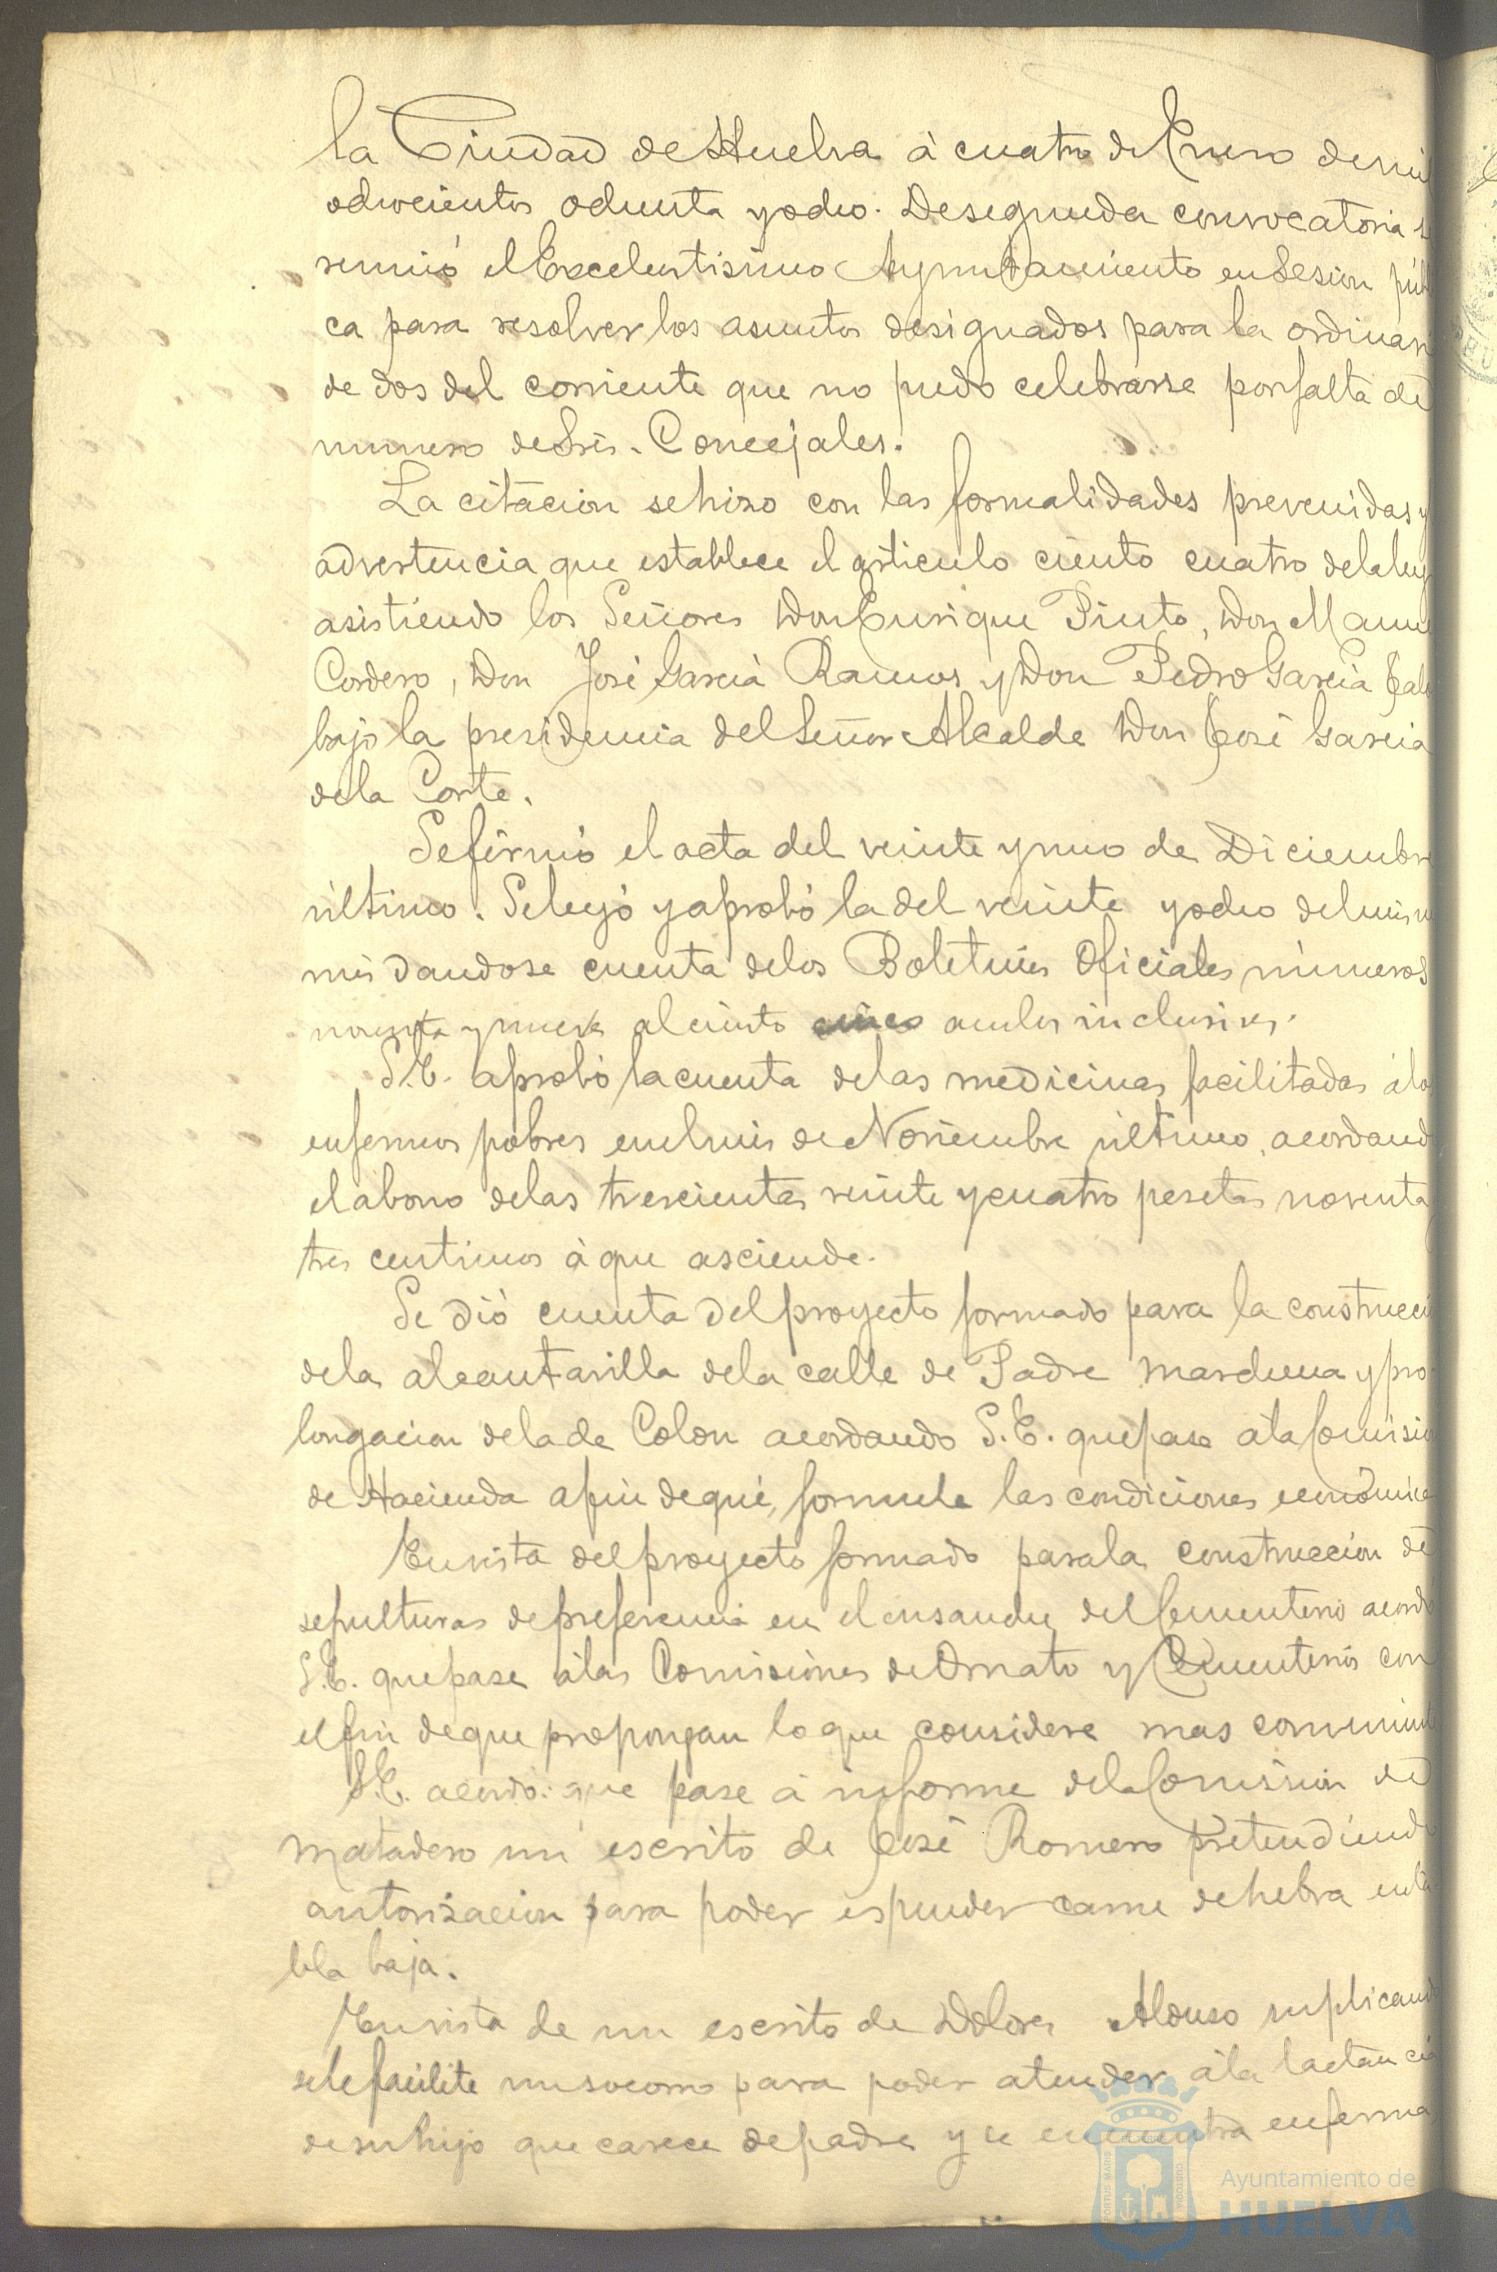 la Ciudad de Huelva à cuatro de Enero de mil
ochocientos ochenta y ocho. De segunda convocatoria se
reunió el Excelentisimo Ayuntamiento en Sesion públi
ca para resolver los asuntos designados para la ordinari
de dos del corriente que no pudo celebrarse por falta de
numero de Sres. Concejales.
La citacion se hizo con las formalidades prevenidas y
advertencia que establece el articulo ciento cuatro de la ley
asistiendo los Señores Don Enrique Pinto, Don Manuel
Cordero, Don José Garcia Ramos y Don Pedro Garcia
bajo la presidencia del Señor Alcalde Don José Garcia
de la Corte.
Se firmó el acta del veinte y uno de Diciembre
último. Se leyó y aprobó la del veinte y ocho del mismo
mes dandose cuenta de los Boletines Oficiales números
noventa y nueve al ciento cinco ambos inclusives.
S.E. aprobó la cuenta de las medicinas facilitadas á los
enfermos pobres en el mes de Noviembre último, acordand
el abono de las trescientas veinte y cuatro pesetas noventa
tres centimos à que asciende.
Se dió cuenta del proyecto formado para la construcci
de la alcantarilla de la calle de Padre Marchena y pro
longacion de la de Colon acordando S.E. que pase a la Comisio
de Hacienda a fin de que, formule las condiciones económica
En vista del proyecto formado para la construccion de
sepulturas de preferencia en el ensanche del Cementerio acordó
S.E. que pase á las Comisiones de Ornato y Cementerios con
el fin de que propongan lo que considere mas convenient
S.E. acordó: que pase á informe de la Comision de
Matadero un escrito de José Romero pretendiend
autorizacion para poder espender carne de hebra en ta
bla baja.
En vista de un escrito de Dolores Alonso suplicand
se le facilite un socorro para poder atender á la lactancia
de su hijo que carece de padre y se encuentra enferma
Ayuntamiento de
HUELVA